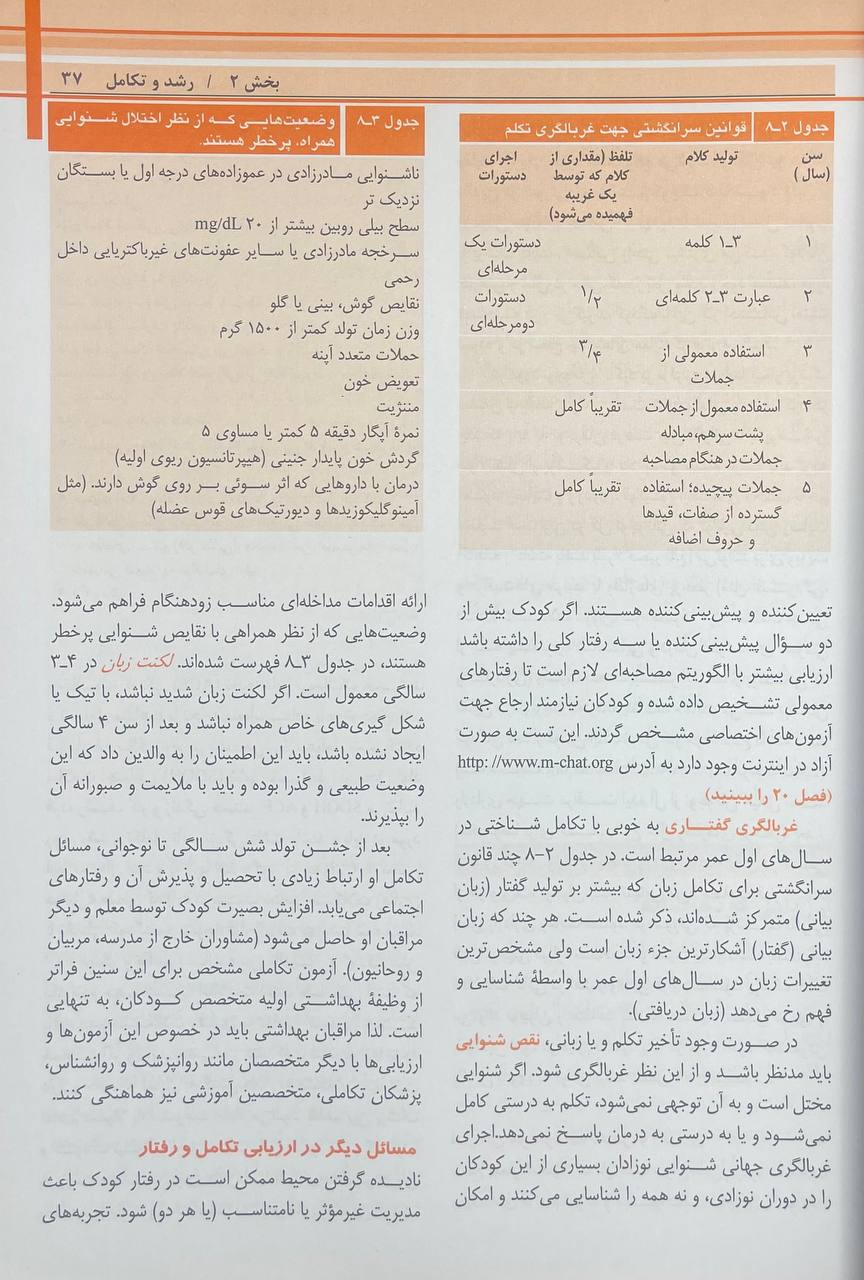 بخش ۲ / رشد و تکامل ۳۷
جدول ۲-۸ قوانین سرانگشتی جهت غربالگری تکلم
سن (سال) تولید کلام تلفظ (مقداری از کلام که توسط یک غریبه فهمیده می‌شود) اجرای دستورات
۱ ۳-۱ کلمه دستورات یک مرحله‌ای
۲ عبارت ۳-۲ کلمه‌ای ۱/۲ دستورات دومرحله‌ای
۳ استفاده معمولی از جملات ۳/۴
۴ استفاده معمول از جملات پشت سرهم، مبادله جملات در هنگام مصاحبه تقریباً کامل
۵ جملات پیچیده؛ استفاده گسترده از صفات، قیدها و حروف اضافه تقریباً کامل
تعیین‌کننده و پیش‌بینی‌کننده هستند. اگر کودک بیش از
دو سؤال پیش‌بینی‌کننده یا سه رفتار کلی را داشته باشد
ارزیابی بیشتر با الگوریتم مصاحبه‌ای لازم است تا رفتارهای
معمولی تشخیص داده شده و کودکان نیازمند ارجاع جهت
آزمون‌های اختصاصی مشخص گردند. این تست به صورت
آزاد در اینترنت وجود دارد به آدرس http: //www.m-chat.org
(فصل ۲۰ را ببینید)
غربالگری گفتاری به خوبی با تکامل شناختی در
سال‌های اول عمر مرتبط است. در جدول ۲-۸ چند قانون
سرانگشتی برای تکامل زبان که بیشتر بر تولید گفتار (زبان
بیانی) متمرکز شده‌اند، ذکر شده است. هر چند که زبان
بیانی (گفتار) آشکارترین جزء زبان است ولی مشخص‌ترین
تغییرات زبان در سال‌های اول عمر با واسطهٔ شناسایی و
فهم رخ می‌دهد (زبان دریافتی).
در صورت وجود تأخیر تکلم و یا زبانی، نقص شنوایی
باید مدنظر باشد و از این نظر غربالگری شود. اگر شنوایی
مختل است و به آن توجهی نمی‌شود، تکلم به درستی کامل
نمی‌شود و یا به درستی به درمان پاسخ نمی‌دهد.اجرای
غربالگری جهانی شنوایی نوزادان بسیاری از این کودکان
را در دوران نوزادی، و نه همه را شناسایی می‌کنند و امکان
جدول ۳-۸ وضعیت‌هایی که از نظر اختلال شنوایی
همراه، پرخطر هستند.
ناشنوایی مادرزادی در عموزاده‌های درجه اول یا بستگان
نزدیک تر
سطح بیلی روبین بیشتر از ۲۰ mg/dL
سرخجه مادرزادی یا سایر عفونت‌های غیرباکتریایی داخل
رحمی
نقایص گوش، بینی یا گلو
وزن زمان تولد کمتر از ۱۵۰۰ گرم
حملات متعدد آپنه
تعویض خون
مننژیت
نمرهٔ آپگار دقیقه ۵ کمتر یا مساوی ۵
گردش خون پایدار جنینی (هیپرتانسیون ریوی اولیه)
درمان با داروهایی که اثر سوئی بر روی گوش دارند. (مثل
آمینوگلیکوزیدها و دیورتیک‌های قوس عضله)
ارائه اقدامات مداخله‌ای مناسب زودهنگام فراهم می‌شود.
وضعیت‌هایی که از نظر همراهی با نقایص شنوایی پرخطر
هستند، در جدول ۳-۸ فهرست شده‌اند. لکنت زبان در ۴-۳
سالگی معمول است. اگر لکنت زبان شدید نباشد، با تیک یا
شکل گیری‌های خاص همراه نباشد و بعد از سن ۴ سالگی
ایجاد نشده باشد، باید این اطمینان را به والدین داد که این
وضعیت طبیعی و گذرا بوده و باید با ملایمت و صبورانه آن
را بپذیرند.
بعد از جشن تولد شش سالگی تا نوجوانی، مسائل
تکامل او ارتباط زیادی با تحصیل و پذیرش آن و رفتارهای
اجتماعی می‌یابد. افزایش بصیرت کودک توسط معلم و دیگر
مراقبان او حاصل می‌شود (مشاوران خارج از مدرسه، مربیان
و روحانیون). آزمون تکاملی مشخص برای این سنین فراتر
از وظیفهٔ بهداشتی اولیه متخصص کودکان، به تنهایی
است. لذا مراقبان بهداشتی باید در خصوص این آزمون‌ها و
ارزیابی‌ها با دیگر متخصصان مانند روانپزشک و روانشناس،
پزشکان تکاملی، متخصصین آموزشی نیز هماهنگی کنند.
مسائل دیگر در ارزیابی تکامل و رفتار
نادیده گرفتن محیط ممکن است در رفتار کودک باعث
مدیریت غیرمؤثر یا نامتناسب (یا هر دو) شود. تجربه‌های